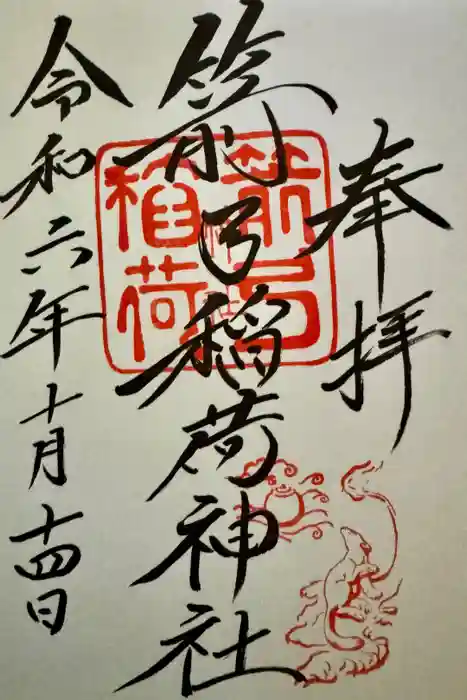 奉拝
箭弓稲荷神社
箭弓稲荷
令和六年十月十四日